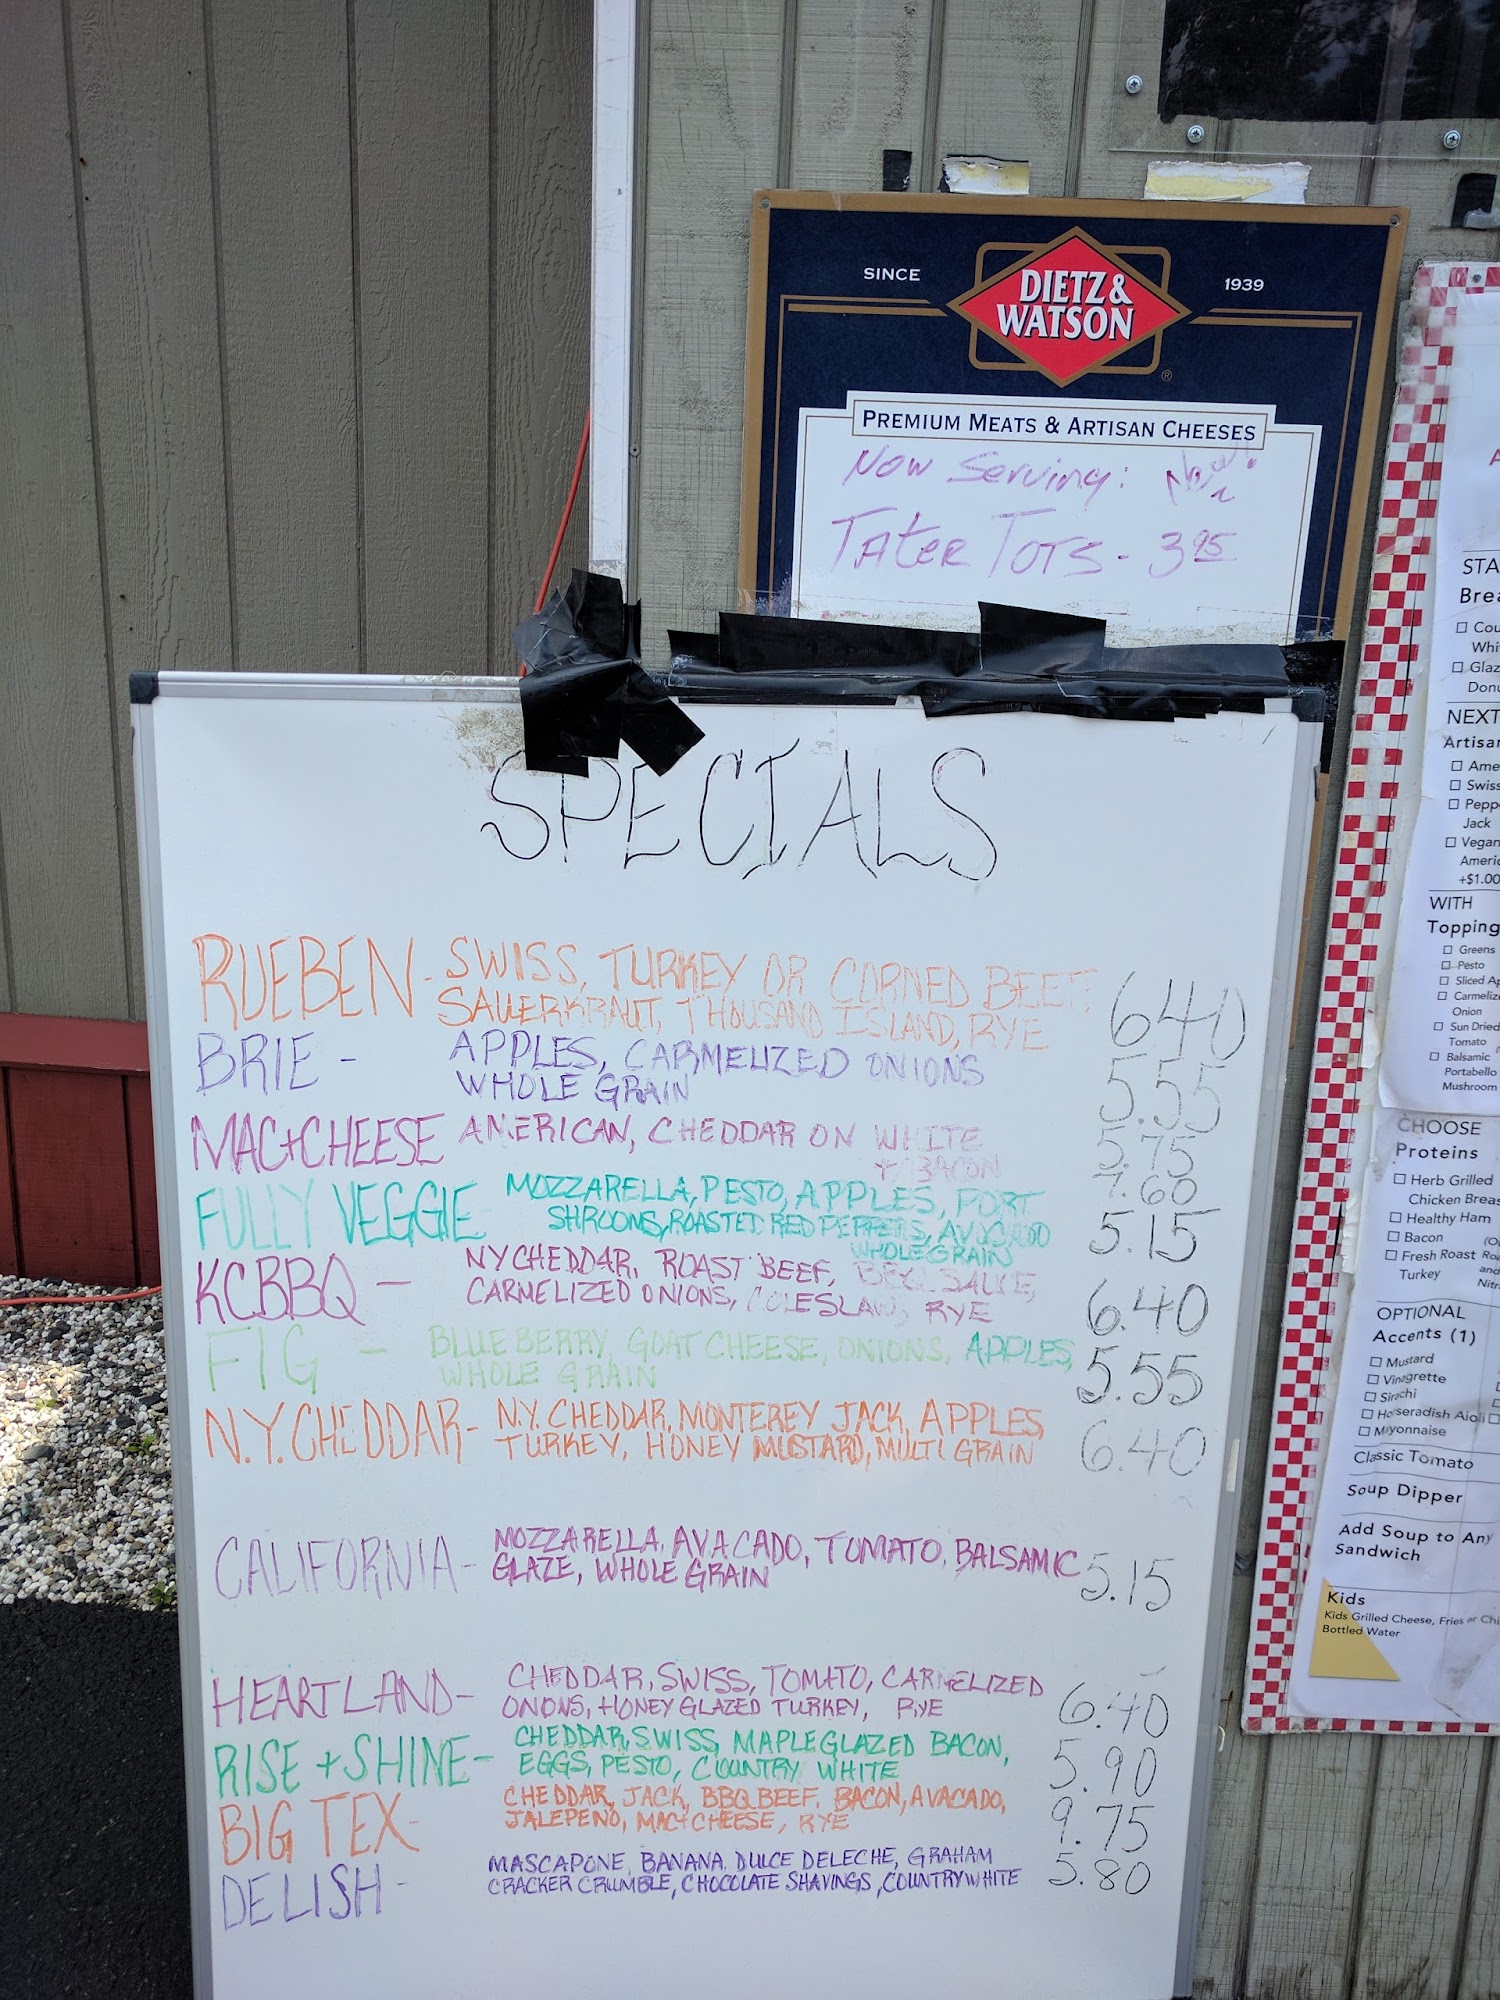 SINCE
1939
DIETZ &
WATSON
®
PREMIUM MEATS & ARTISAN CHEESES
Now Serving:
TATER TOTS - 3 95
SPECIALS
RUEBEN - SWISS, TURKEY OR CORNED BEEF,
SAUERKRAUT, THOUSAND ISLAND, RYE 6.40
BRIE - APPLES, CARMELIZED ONIONS
WHOLE GRAIN 5.55
MAC+CHEESE AMERICAN, CHEDDAR ON WHITE 5.75
+ BACON 7.60
FULLY VEGGIE MOZZARELLA, PESTO, APPLES, PORT
SHROOMS, ROASTED RED PEPPERS, AVOCADO 5.15
WHOLE GRAIN
KCBBQ - NY CHEDDAR, ROAST BEEF, BBQ SAUCE,
CARMELIZED ONIONS, COLESLAW, RYE 6.40
FIG - BLUEBERRY, GOAT CHEESE, ONIONS, APPLES,
WHOLE GRAIN 5.55
N.Y. CHEDDAR - N.Y. CHEDDAR, MONTEREY JACK, APPLES,
TURKEY, HONEY MUSTARD, MULTI GRAIN 6.40
CALIFORNIA - MOZZARELLA, AVACADO, TOMATO, BALSAMIC
GLAZE, WHOLE GRAIN 5.15
HEARTLAND - CHEDDAR, SWISS, TOMATO, CARMELIZED
ONIONS, HONEY GLAZED TURKEY, RYE 6.40
RISE + SHINE - CHEDDAR, SWISS, MAPLE GLAZED BACON,
EGGS, PESTO, COUNTRY WHITE 5.90
BIG TEX - CHEDDAR, JACK, BBQ BEEF, BACON, AVACADO,
JALEPENO, MAC+CHEESE, RYE 9.75
DELISH - MASCAPONE, BANANA, DULCE DELECHE, GRAHAM
CRACKER CRUMBLE, CHOCOLATE SHAVINGS, COUNTRY WHITE 5.80
STA
Brea
Cou
Whi
Glaz
Donu
NEXT
Artisan
Ame
Swiss
Pepp
Jack
Vegan
Ameri
+$1.00
WITH
Topping
Greens
Pesto
Sliced Ap
Carmeliz
Onion
Sun Dried
Tomato
Balsamic
Portabello
Mushroom
CHOOSE
Proteins
Herb Grilled
Chicken Breas
Healthy Ham
Bacon
Fresh Roast
Turkey
OPTIONAL
Accents (1)
Mustard
Vinagrette
Sirachi
Horseradish Aioli
Mayonnaise
Classic Tomato
Soup Dipper
Add Soup to Any
Sandwich
Kids
Kids Grilled Cheese, Fries or Chi
Bottled Water